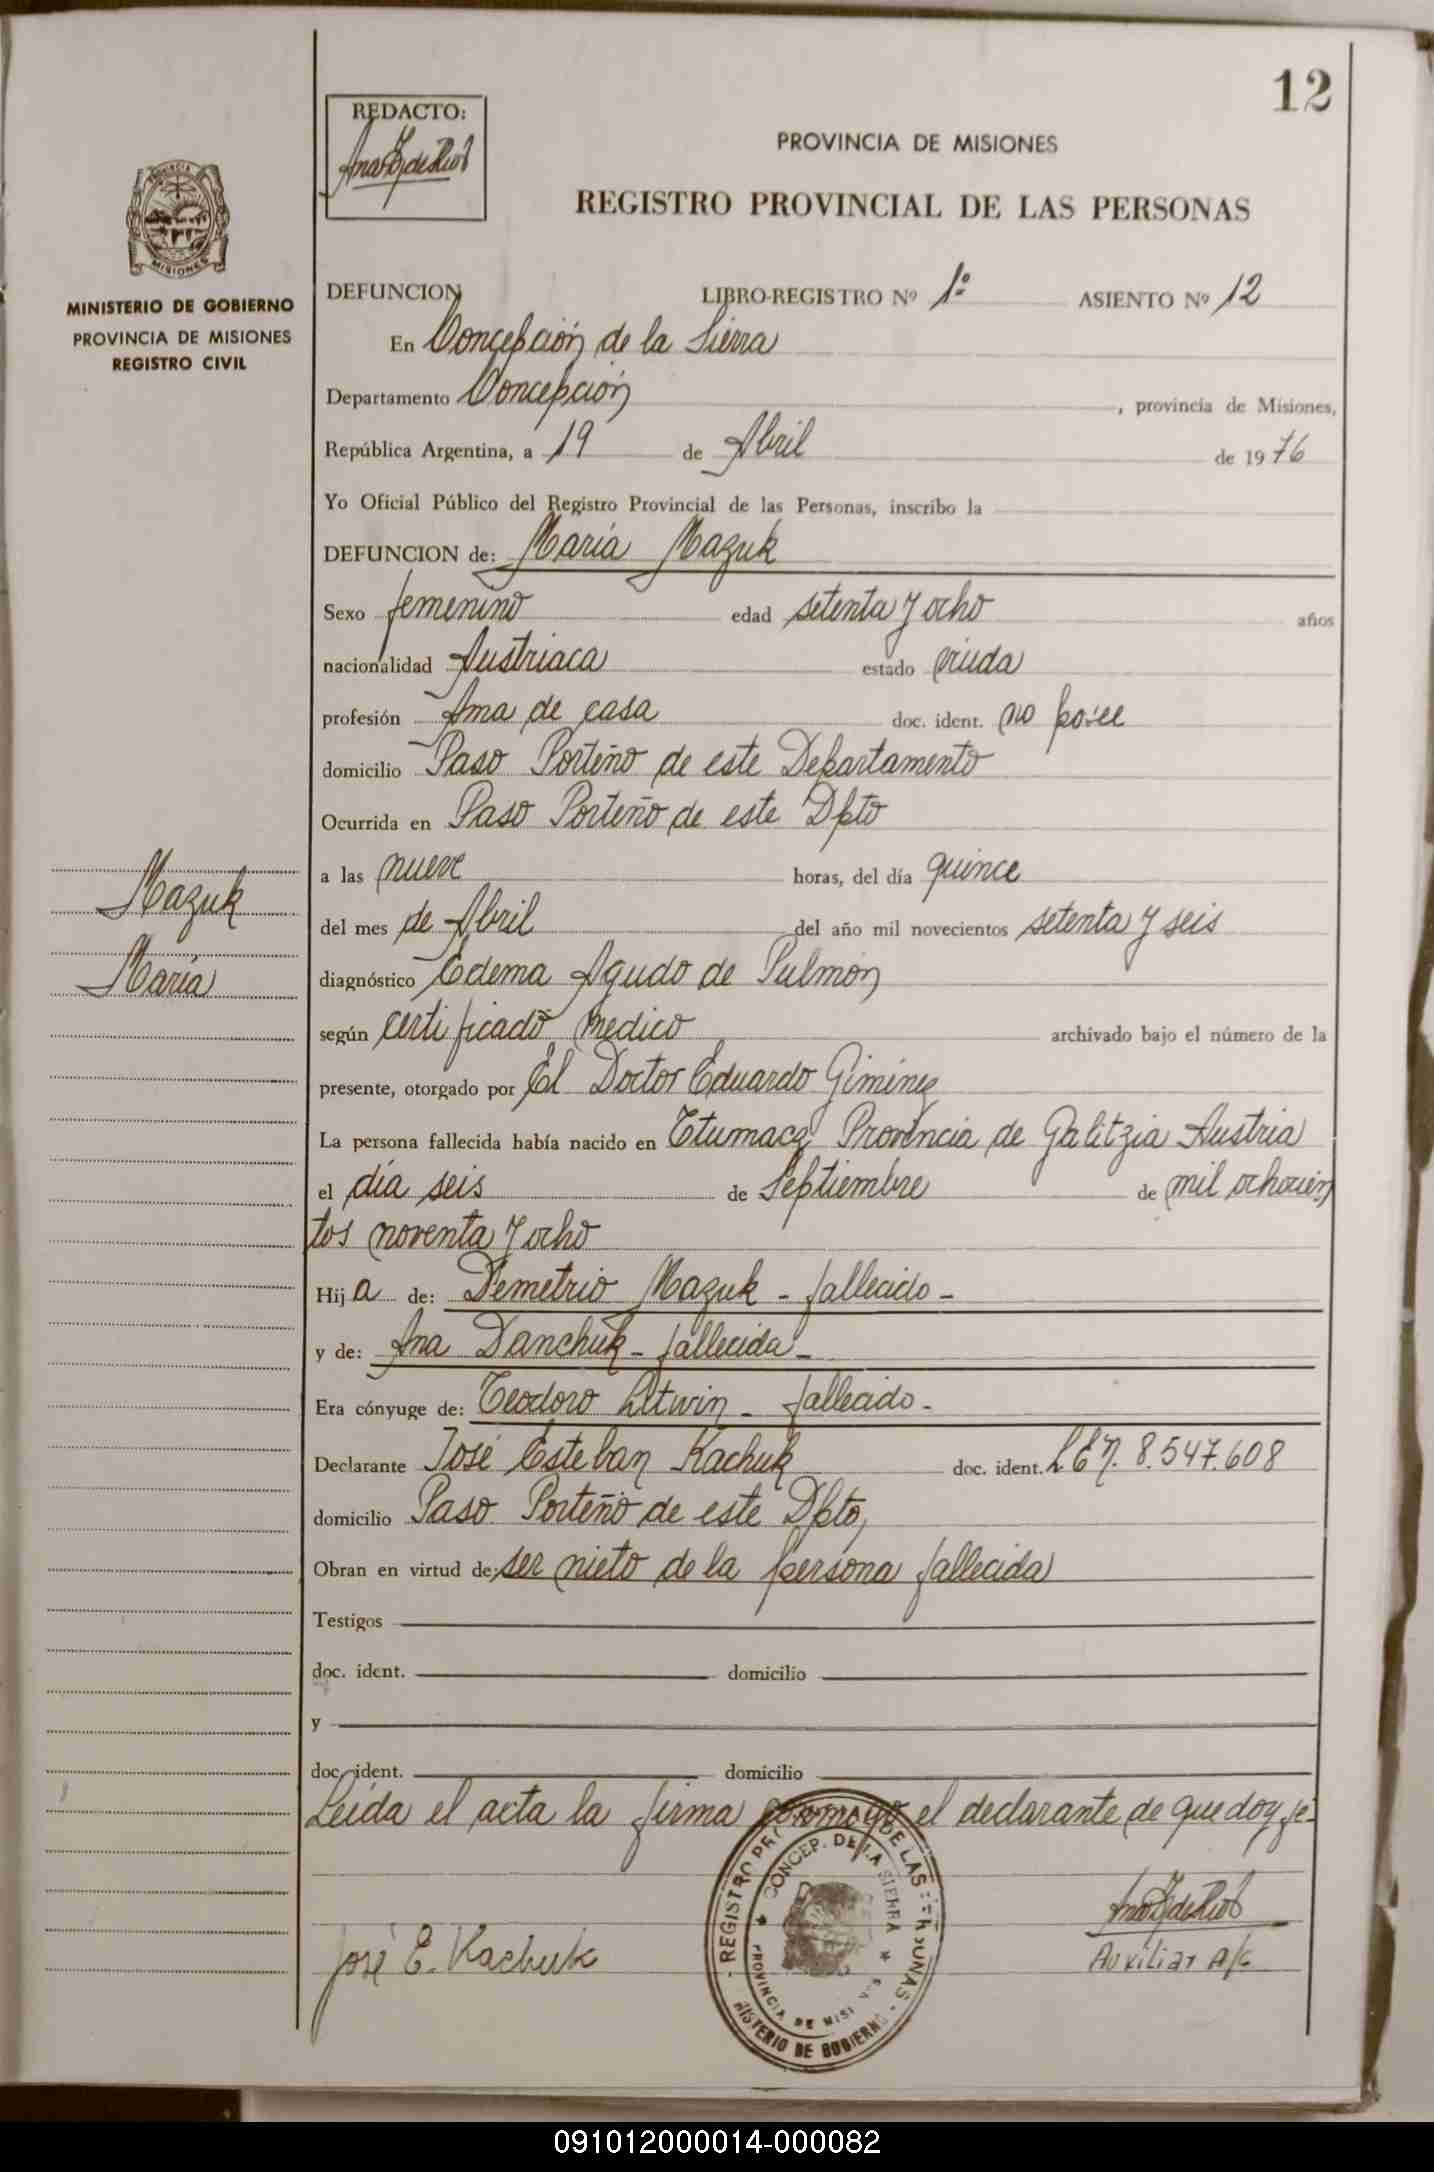 12
REDACTO:
PROVINCIA DE MISIONES
REGISTRO PROVINCIAL DE LAS PERSONAS
PROVINCIA
MISIONES
MINISTERIO DE GOBIERNO
PROVINCIA DE MISIONES
REGISTRO CIVIL
DEFUNCION LIBRO-REGISTRO Nº 1º ASIENTO Nº 12
En Concepción de la Sierra
Departamento Concepción, provincia de Misiones,
República Argentina, a 19 de Abril de 1976
Yo Oficial Público del Registro Provincial de las Personas, inscribo la
DEFUNCION de: María Mazuk
Sexo femenino edad setenta y ocho años
nacionalidad Austriaca estado viuda
profesión Ama de casa doc. ident. no posee
domicilio Paso Porteño de este Departamento
Ocurrida en Paso Porteño de este Dpto
a las nueve horas, del día quince
Mazuk
del mes de Abril del año mil novecientos setenta y seis
María
diagnóstico Edema Agudo de Pulmón
según certificado medico archivado bajo el número de la
presente, otorgado por El Doctor Eduardo Giminez
La persona fallecida había nacido en Ttumacz Provincia de Galitzia Austria
el día seis de Septiembre de mil ochocien
tos noventa y ocho
Hija de: Demetrio Mazuk - fallecido -
y de: Ana Danchuk - fallecida -
Era cónyuge de: Teodoro Litwin - fallecido -
Declarante José Esteban Kachuk doc. ident. L E N. 8.547.608
domicilio Paso Porteño de este Dpto,
Obran en virtud de: ser nieto de la persona fallecida
Testigos
doc. ident. domicilio
y
doc. ident. domicilio
Leida el acta la firma conmigo el declarante de que doy fé.
José E. Kachuk
Auxiliar A/C
REGISTRO PROVINCIAL DE LAS PERSONAS
CONCEP. DE LA SIERRA
PROVINCIA DE MISIONES
MINISTERIO DE GOBIERNO
091012000014-000082